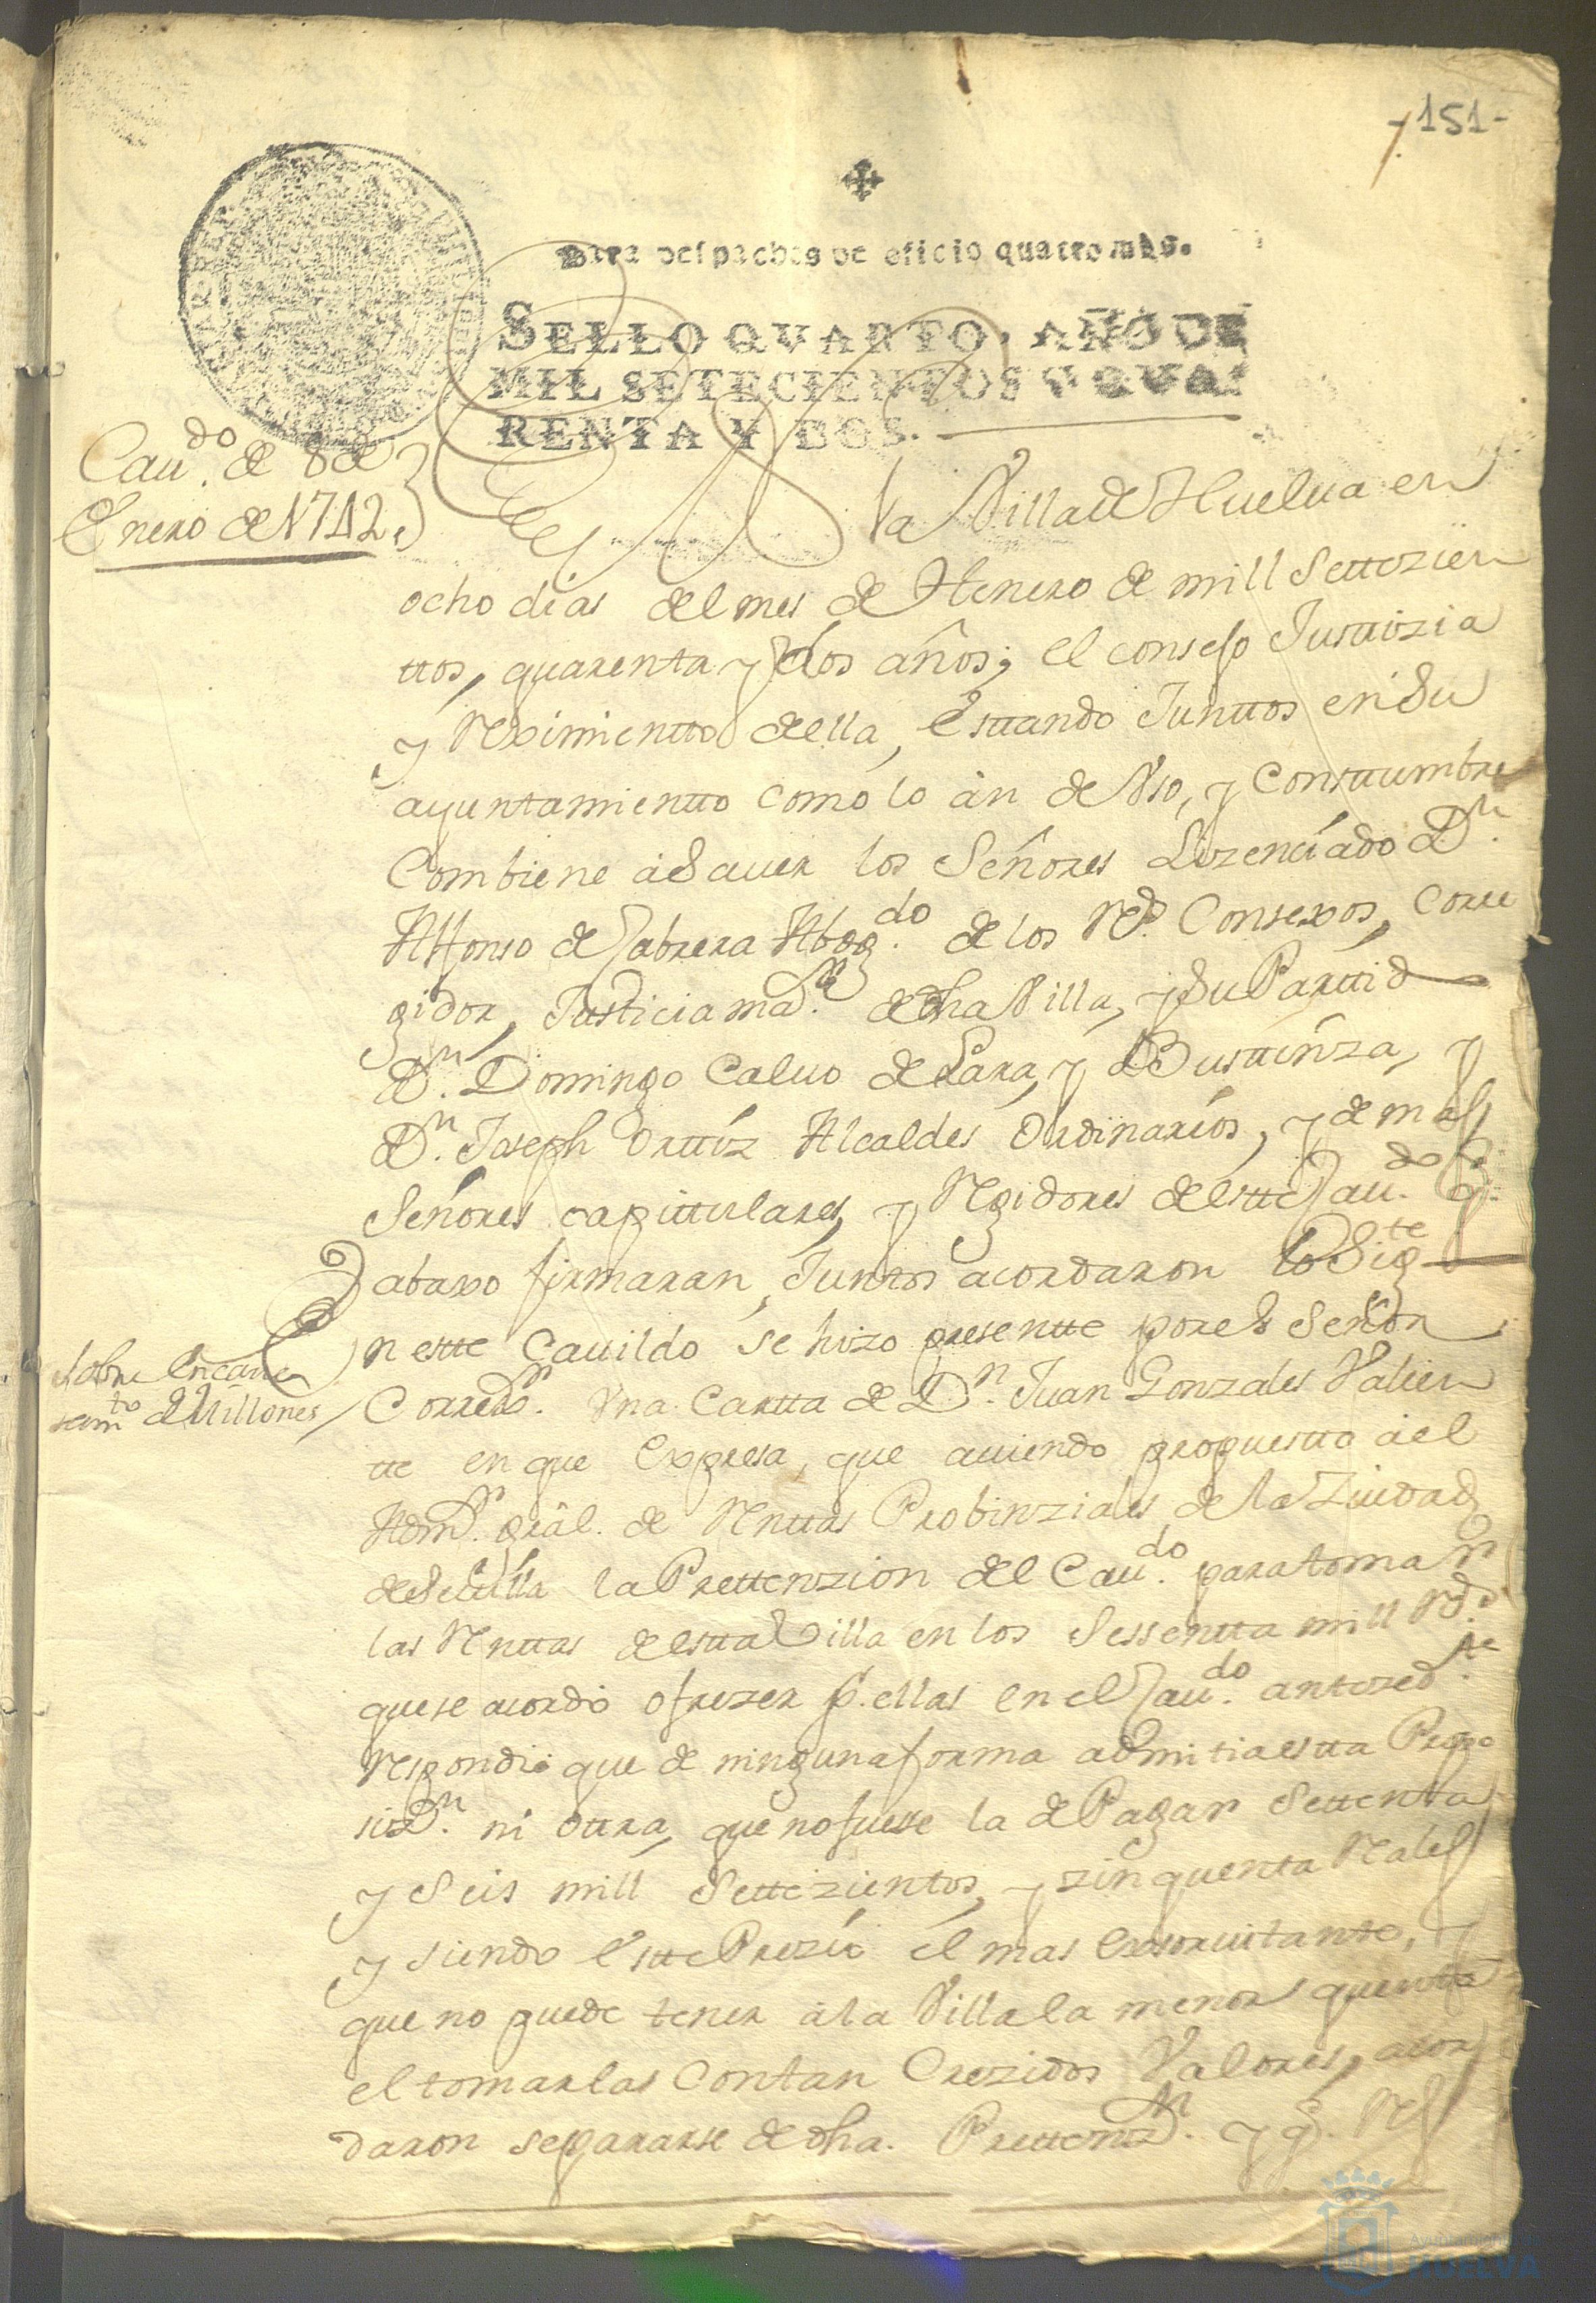 -151-
Para despachos de oficio quatro mrs.
SELLO QVARTO, AÑO DE
MIL SETECIENTOS Y QVA-
RENTA Y DOS.
Cau.do de 8 de
Enero de 1742.
la Villa de Huelua en
ocho dias del mes de Henero de mill Settezien
ttos, quarenta y dos años; el consejo Justtizia
y Reximientto della, esttando Junttos en su
ayuntamientto como lo an de Vso, y Consttumbre
Combiene a Sauer los Señores Lizenciado Dn.
Alfonso de Cabrera Abog.do de los Rs. Consexos, Corre
gidor, Justicia mar. de dha Villa, y Su Parttid
Dn. Domingo Caluo de Lara, y Busttinza, y
Dn. Joseph Orttiz Alcaldes Ordinarios, y demas
Señores capittulares, y Regidores destte Cau.do q.
abaxo firmaran, Juntos acordaron lo Sig.te
En estte Cauildo se hizo presentte por el Señor
Sobre encaue
zam.to de Millones
Corredr. Vna Cartta de Dn. Juan Gonzales Valien
tte en que expresa, que auiendo propuestto a el
Admr. gral. de Renttas Probinziales de la Ziudad
de Seuilla la Prettenzion del Cau.do para tomar
las Renttas destta Villa en los Sessentta mill Rs.
que se acordo ofrezer p. ellas en el Cau.do antezed.te
respondio que de ninguna forma admitia estta Propo
sizn. ni ottra, que no fuesse la de Pagar Settenta
y Seis mill Settezientos, y zinquenta Rales
y siendo estte Prezio el mas exsorvitante, y
que no puede tener a la Villa la menor quenta
el tomarlas con tan Crezidos Valores, acor
daron separarse de dha. Prettenzn. y q. Res
Ayuntamiento
HUELVA